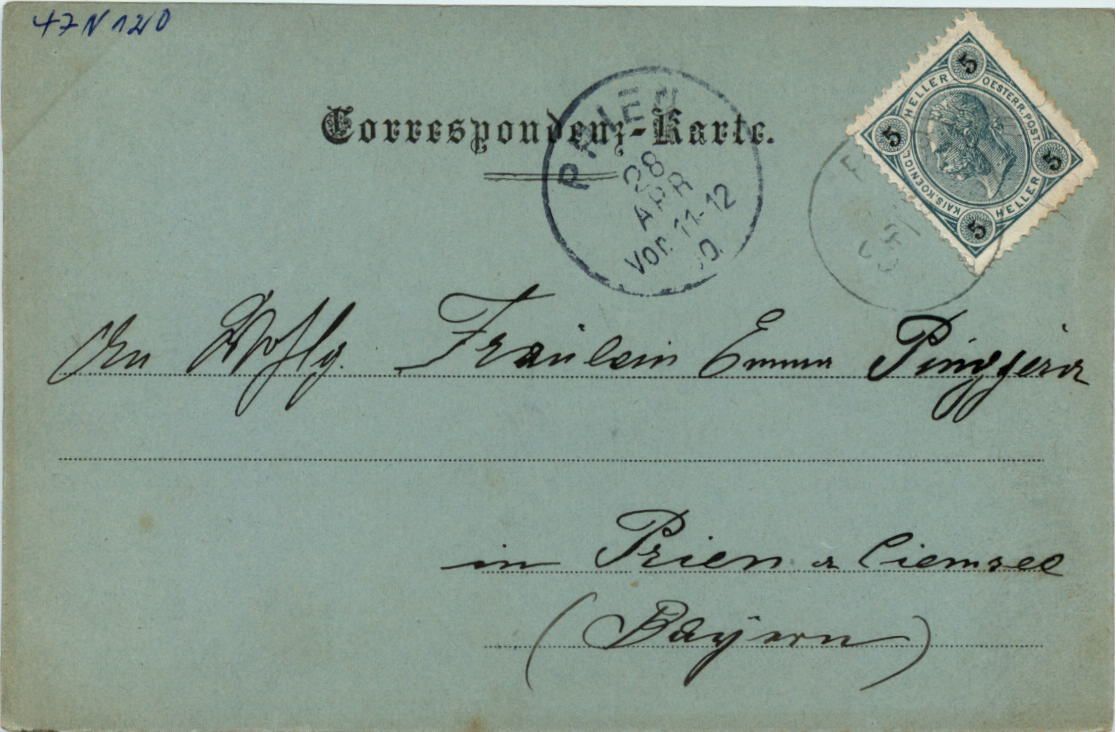 47 N 120
Correspondenz-Karte.
PRIEN
28
APR
Vor. 11-12
00.
5
HELLER
OESTERR. POST
5
5
KAIS. KOENIGL.
HELLER
5
An Fräulein Emma
in Prien a Ciemsee
(Bayern)